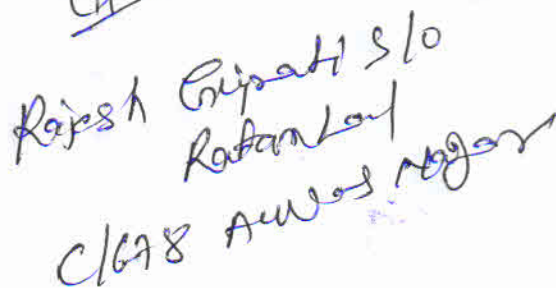 Rajesh Tripati S/o
Ratanlal
C/678 Awas Nagar